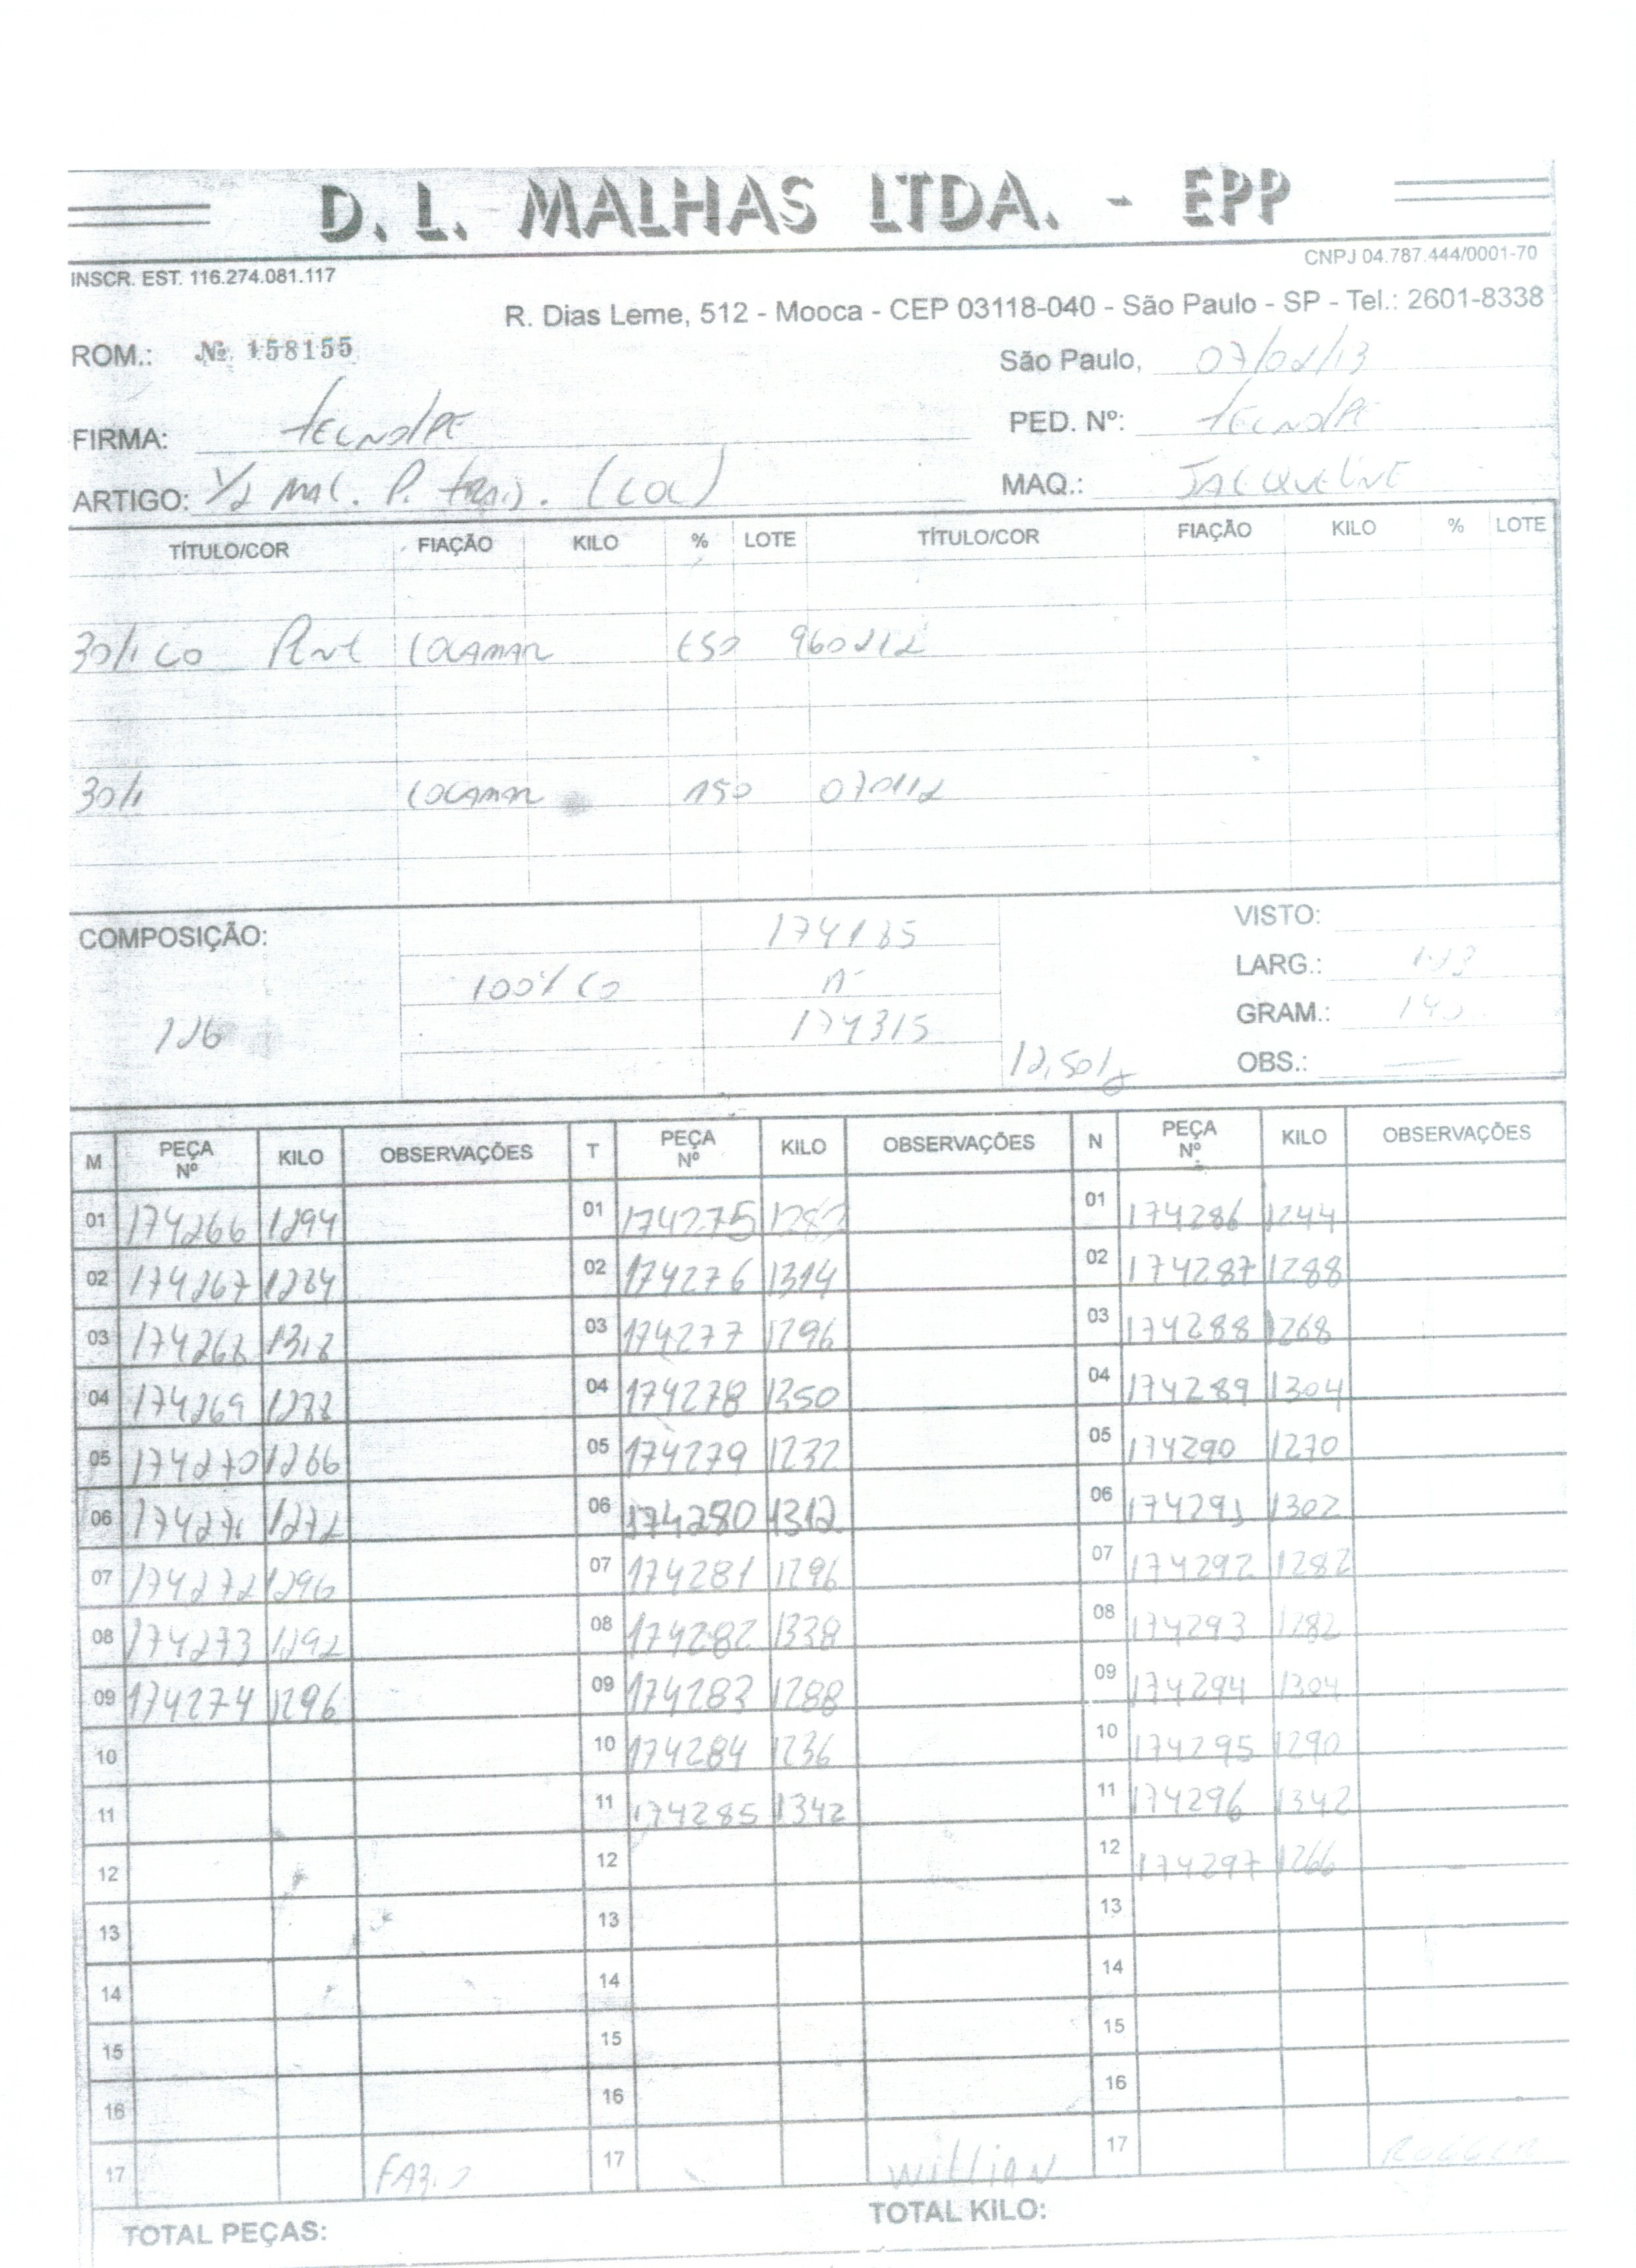 D. L. MALHAS LTDA. - EPP
INSCR. EST. 116.274.081.117 CNPJ 04.787.444/0001-70
R. Dias Leme, 512 - Mooca - CEP 03118-040 - São Paulo - SP - Tel.: 2601-8338
ROM.: Nº 158155 São Paulo, 07/02/13
FIRMA: PED. Nº:
ARTIGO: 1/2 MAL. P. MAQ.: JACQUELINE
TÍTULO/COR FIAÇÃO KILO % LOTE TÍTULO/COR FIAÇÃO KILO % LOTE
30/1 CO COCAMAR 960212
30/1 COCAMAR 150 070112
COMPOSIÇÃO: 174185 VISTO:
100% CO A LARG.:
126 174315 GRAM.:
12,50 OBS.:
M PEÇA Nº KILO OBSERVAÇÕES T PEÇA Nº KILO OBSERVAÇÕES N PEÇA Nº KILO OBSERVAÇÕES
01 174266 1294 01 174275 1282 01 174286 1244
02 174267 02 174276 1314 02 174287 1288
03 174268 03 174277 1296 03 174288 1268
04 174269 04 174278 1350 04 174289 1304
05 174270 1266 05 174279 1232 05 174290 1270
06 174271 1272 06 174280 1312 06 174291 1302
07 174272 1296 07 174281 1296 07 174292 1282
08 174273 1292 08 174282 1338 08 174293 1282
09 174274 1296 09 174283 1288 09 174294 1304
10 10 174284 1236 10 174295 1290
11 11 174285 1342 11 174296 1342
12 12 12 174297 1266
13 13 13
14 14 14
15 15 15
16 16 16
17 FABIO 17 WILLIAN 17
TOTAL PEÇAS: TOTAL KILO: